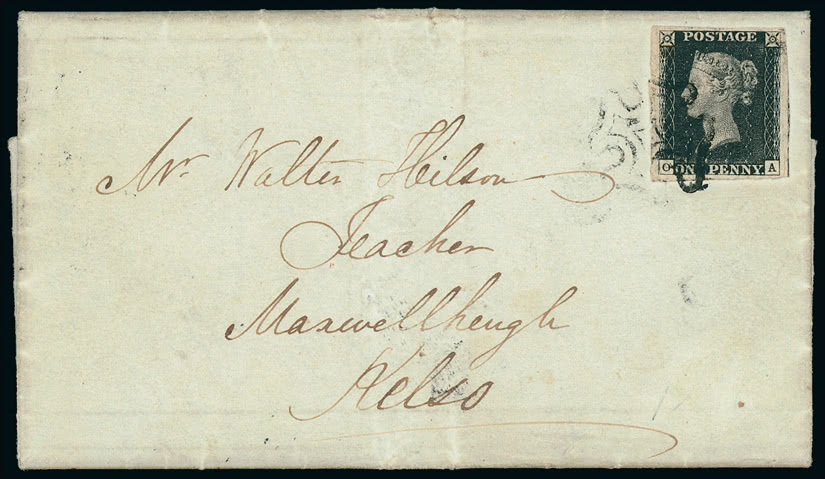 POSTAGE
O ONE PENNY A
Mr Walter Hilson
Teacher
Maxwellheugh
Kelso